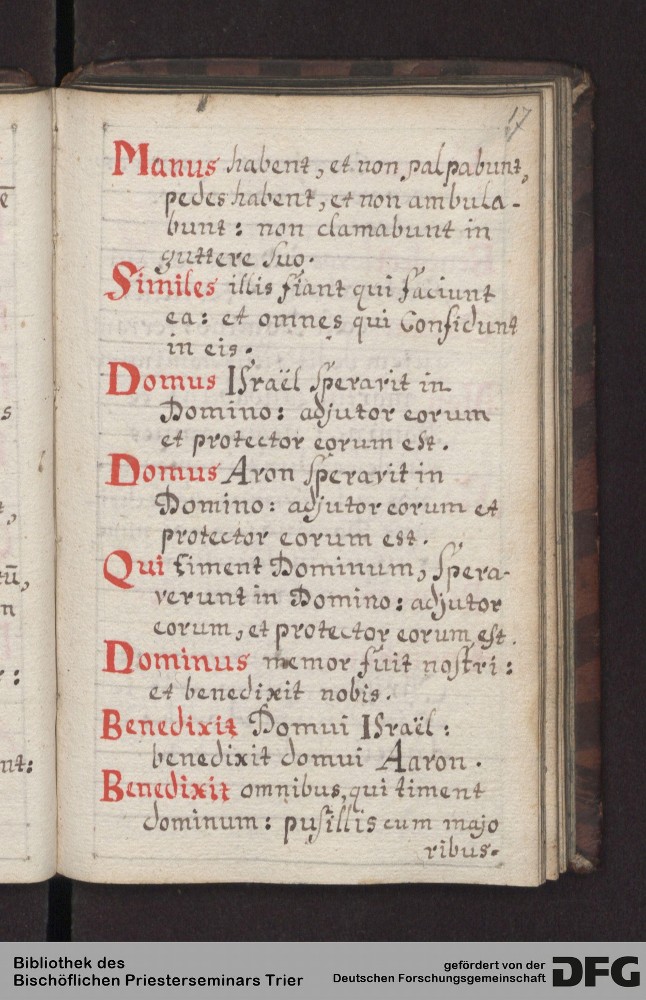 17
Manus habent, et non palpabunt,
pedes habent, et non ambula-
bunt: non clamabunt in
gutture suo.
Similes illis fiant qui faciunt
ea: et omnes qui Confidunt
in eis.
Domus Israël speravit in
Domino: adjutor eorum
et protector eorum est.
Domus Aron speravit in
Domino: adjutor eorum et
protector eorum est.
Qui timent Dominum, spera-
verunt in Domino: adjutor
eorum, et protector eorum est.
Dominus memor fuit nostri:
et benedixit nobis.
Benedixit Domui Israël:
benedixit domui Aaron.
Benedixit omnibus, qui timent
dominum: pusillis cum majo
ribus.
Bibliothek des
Bischöflichen Priesterseminars Trier
gefördert von der
Deutschen Forschungsgemeinschaft
DFG